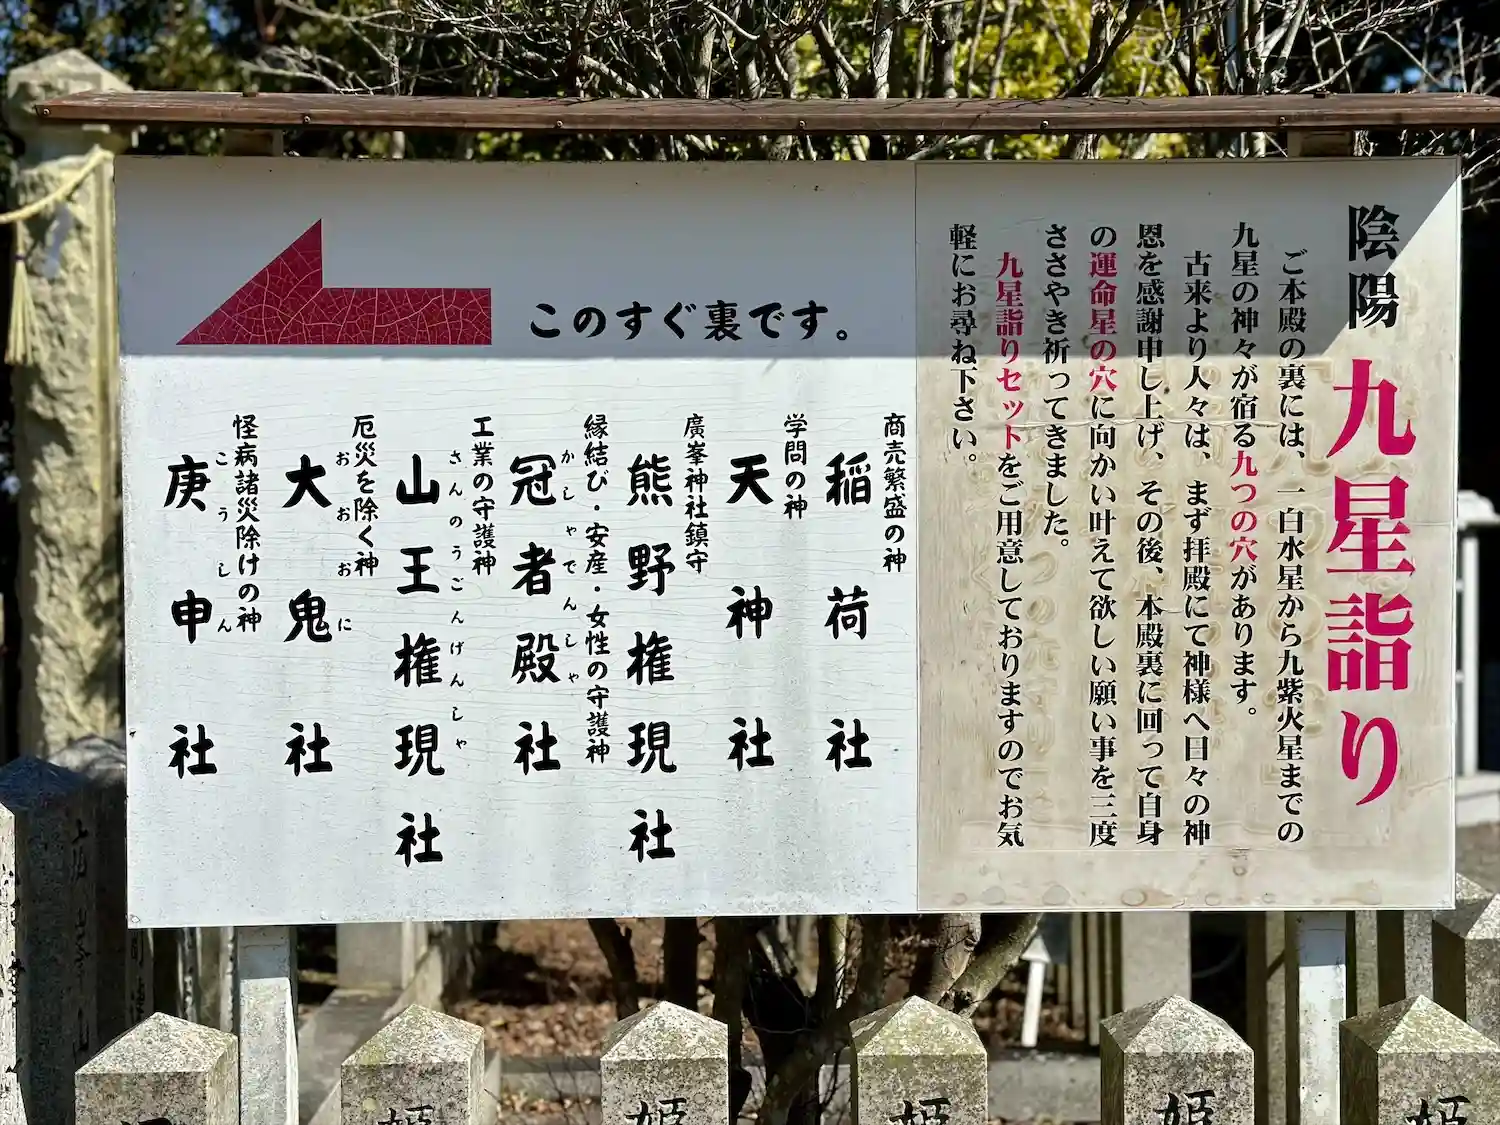 陰陽 九星詣り
ご本殿の裏には、一白水星から九紫火星までの
九星の神々が宿る九つの穴があります。
古来より人々は、まず拝殿にて神様へ日々の神
恩を感謝申し上げ、その後、本殿裏に回って自身
の運命星の穴に向かい叶えて欲しい願い事を三度
ささやき祈ってきました。
九星詣りセットをご用意しておりますのでお気
軽にお尋ね下さい。
このすぐ裏です。
商売繁盛の神
稲荷社
学問の神
天神社
廣峯神社鎮守
熊野権現社
縁結び・安産・女性の守護神
かしゃでんしゃ
冠者殿社
工業の守護神
さんのうごんげんしゃ
山王権現社
厄災を除く神
おおおに
大鬼社
怪病諸災除けの神
こうしん
庚申社
姫
姫
姫
姫
姫